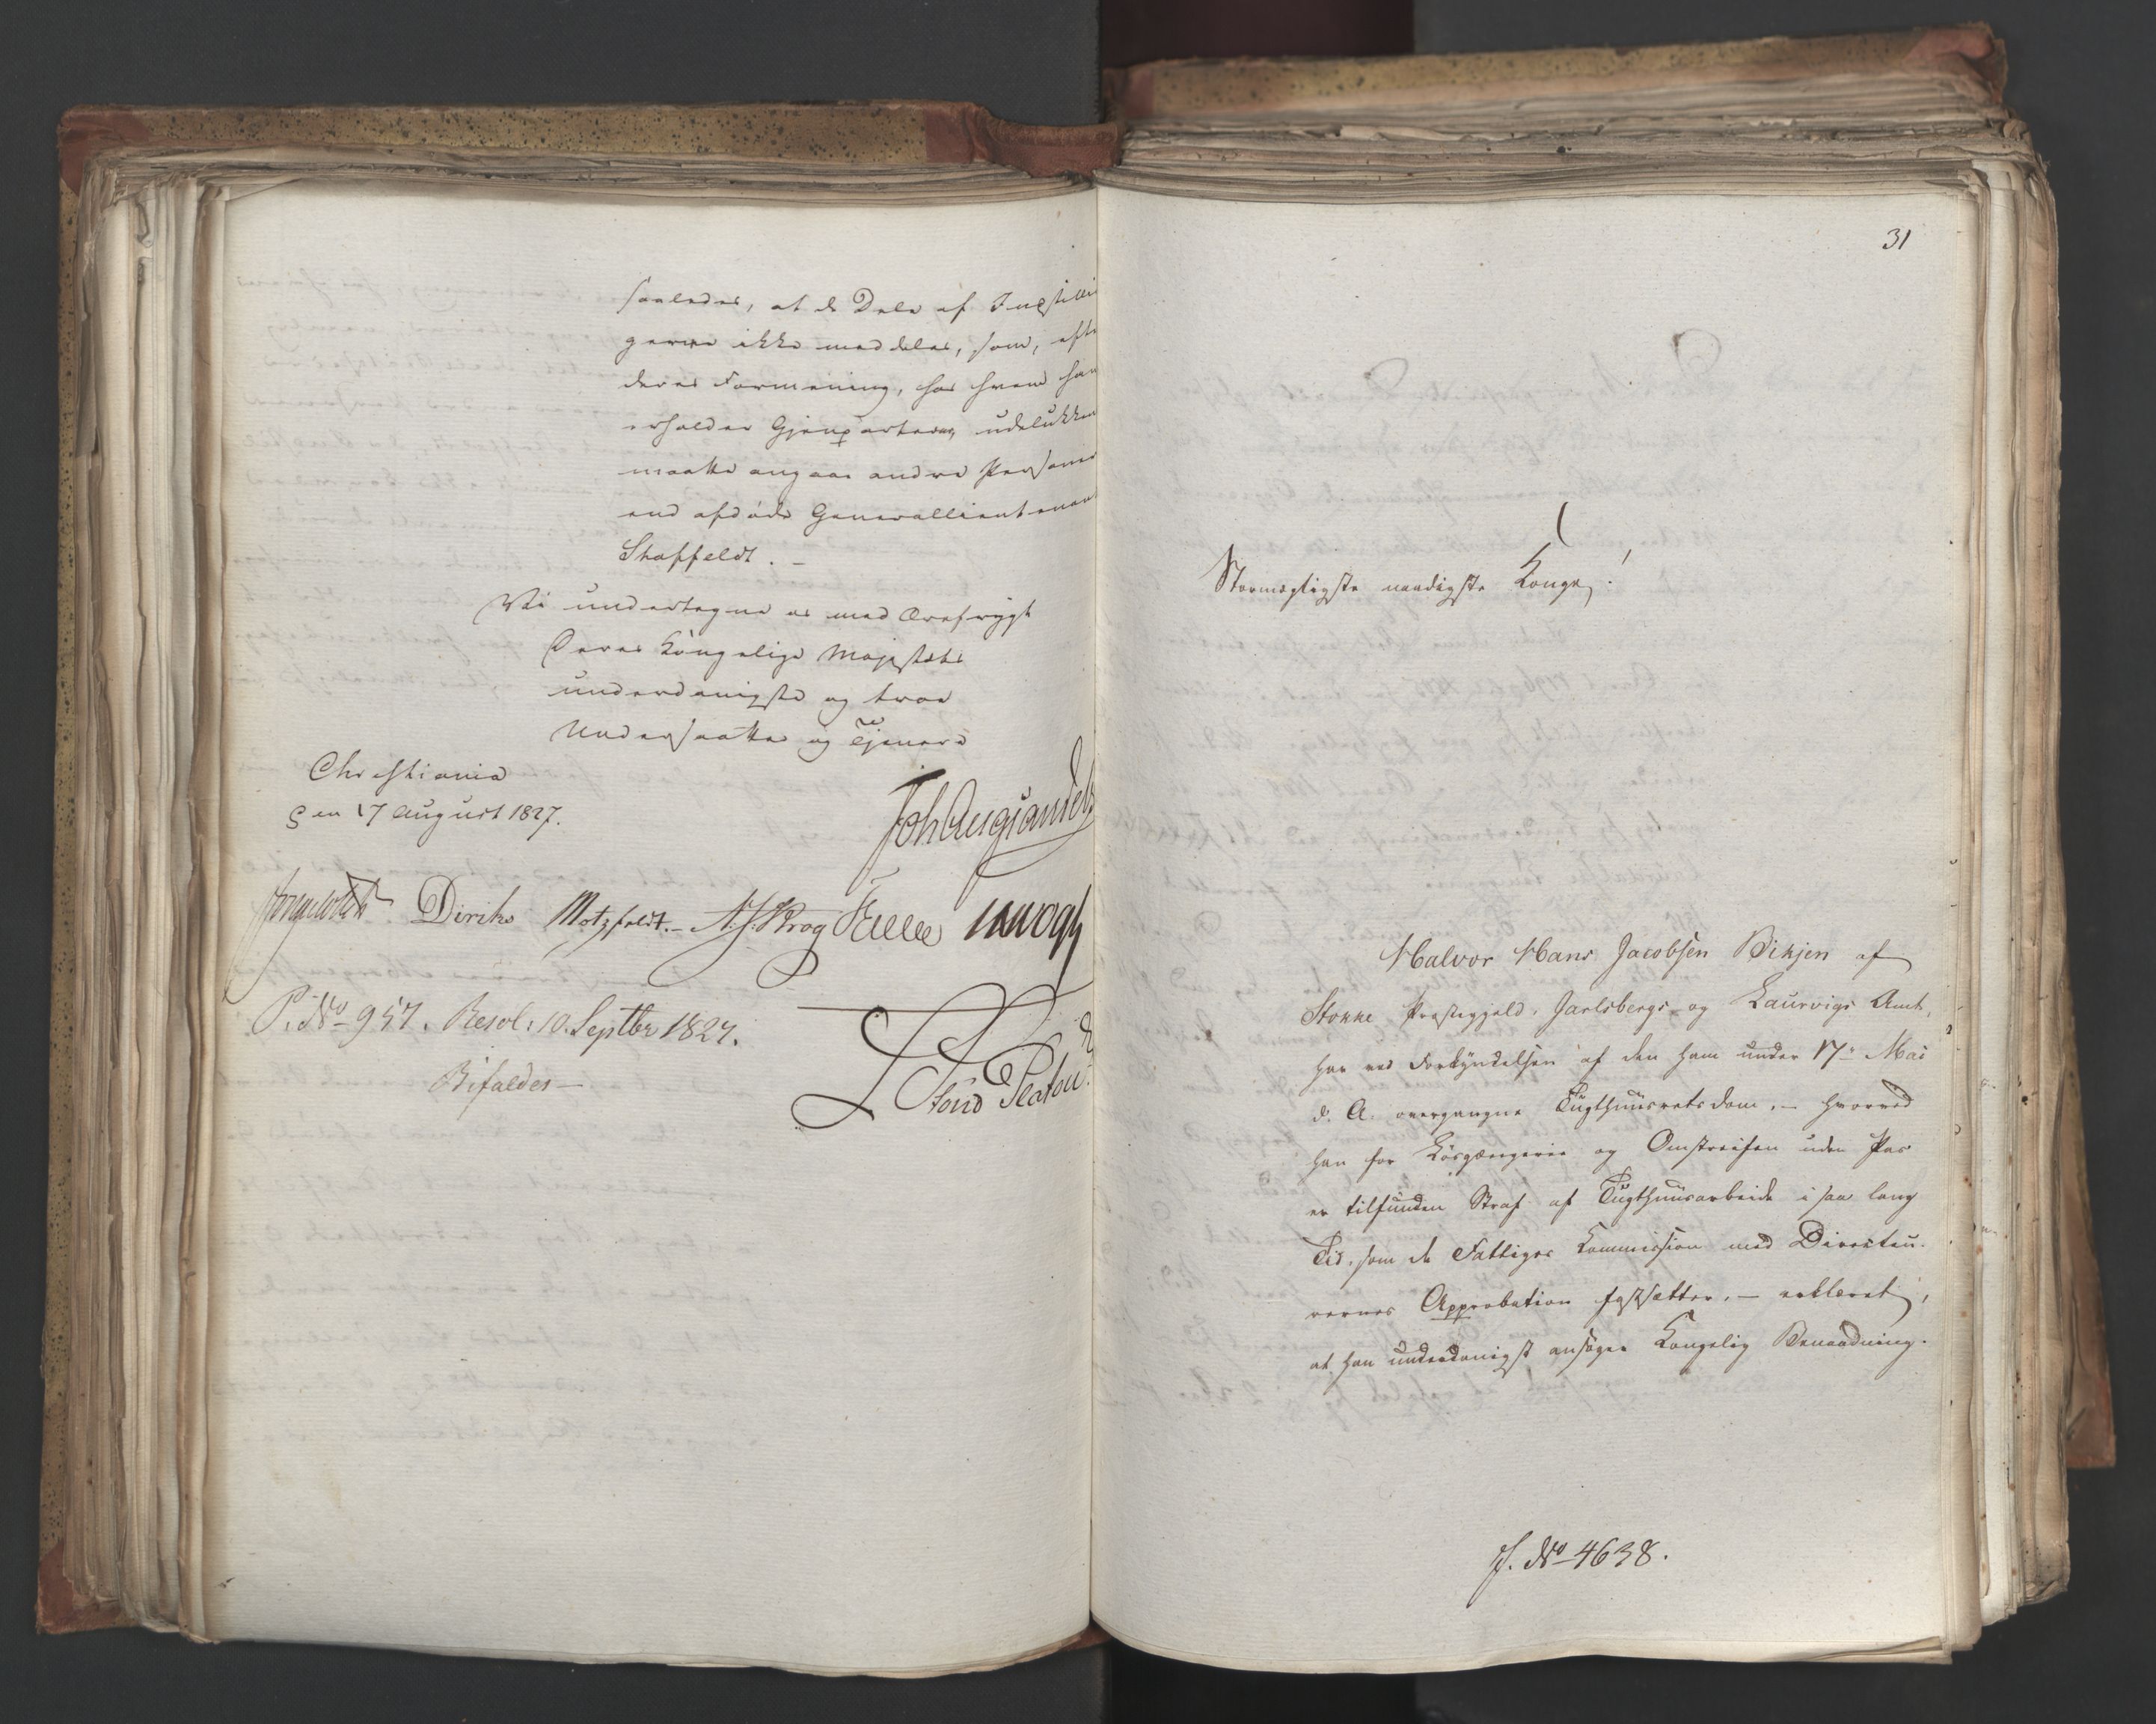 saaledes, at de Dele af Indstillin
gerne ikke meddeles, som, efter
deres Formening, hos hvem han
erholder Gjenparterne, udelukkende
maatte angaae andre Personer
end afdøde Generallieutenant
Staffeldt. –
Vi undertegne os med Ærefrygt
Deres Kongelige Majestæts
underdanigste og troe
Undersaatter og Tjenere
Christiania
den 17 August 1827.
Joh Aug Sandels
Diriks Motzfeldt. – N. J. Krog
P. No 957. Resol: 10. Septbr 1827.
Bifaldes –
Platou
31
Stormægtigste naadigste Konge!
Halvor Hans Jacobsen Vikjen af
Stokke Præstegjeld, Jarlsbergs- og Laurvigs Amt,
har ved Forkyndelsen af den ham under 17de Mai
d. A. overgangne Tugthuusretsdom, – hvorved
han for Løsgængerie og Omstreifen uden Pas
er tilfunden Straf af Tugthuusarbeide i saa lang
Tid, som de Fattiges Kommission med Directeu-
rernes Approbation fastsætter, – erklæret,
at han underdanigst ansøger Kongelig Benaadning.
J. No 4638.